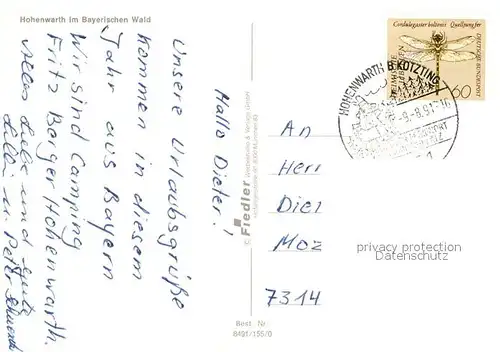 Hohenwarth im Bayerischen Wald
Hallo Dieter!
Unsere Urlaubsgrüße
kommen in diesem
Jahr aus Bayern
Wir sind Camping
Fritz Berger Hohenwarth.
Alles Liebe und Gute
u. Peter
© Fiedler
Best. Nr.
8491/155/0
Cordulegaster boltonii Quelljungfer
DEUTSCHE BUNDESPOST
60
HOHENWARTH B KÖTZTING
-9.-8.91-16
1
An
Herr
Diet
Moz
7314
privacy protection
Datenschutz